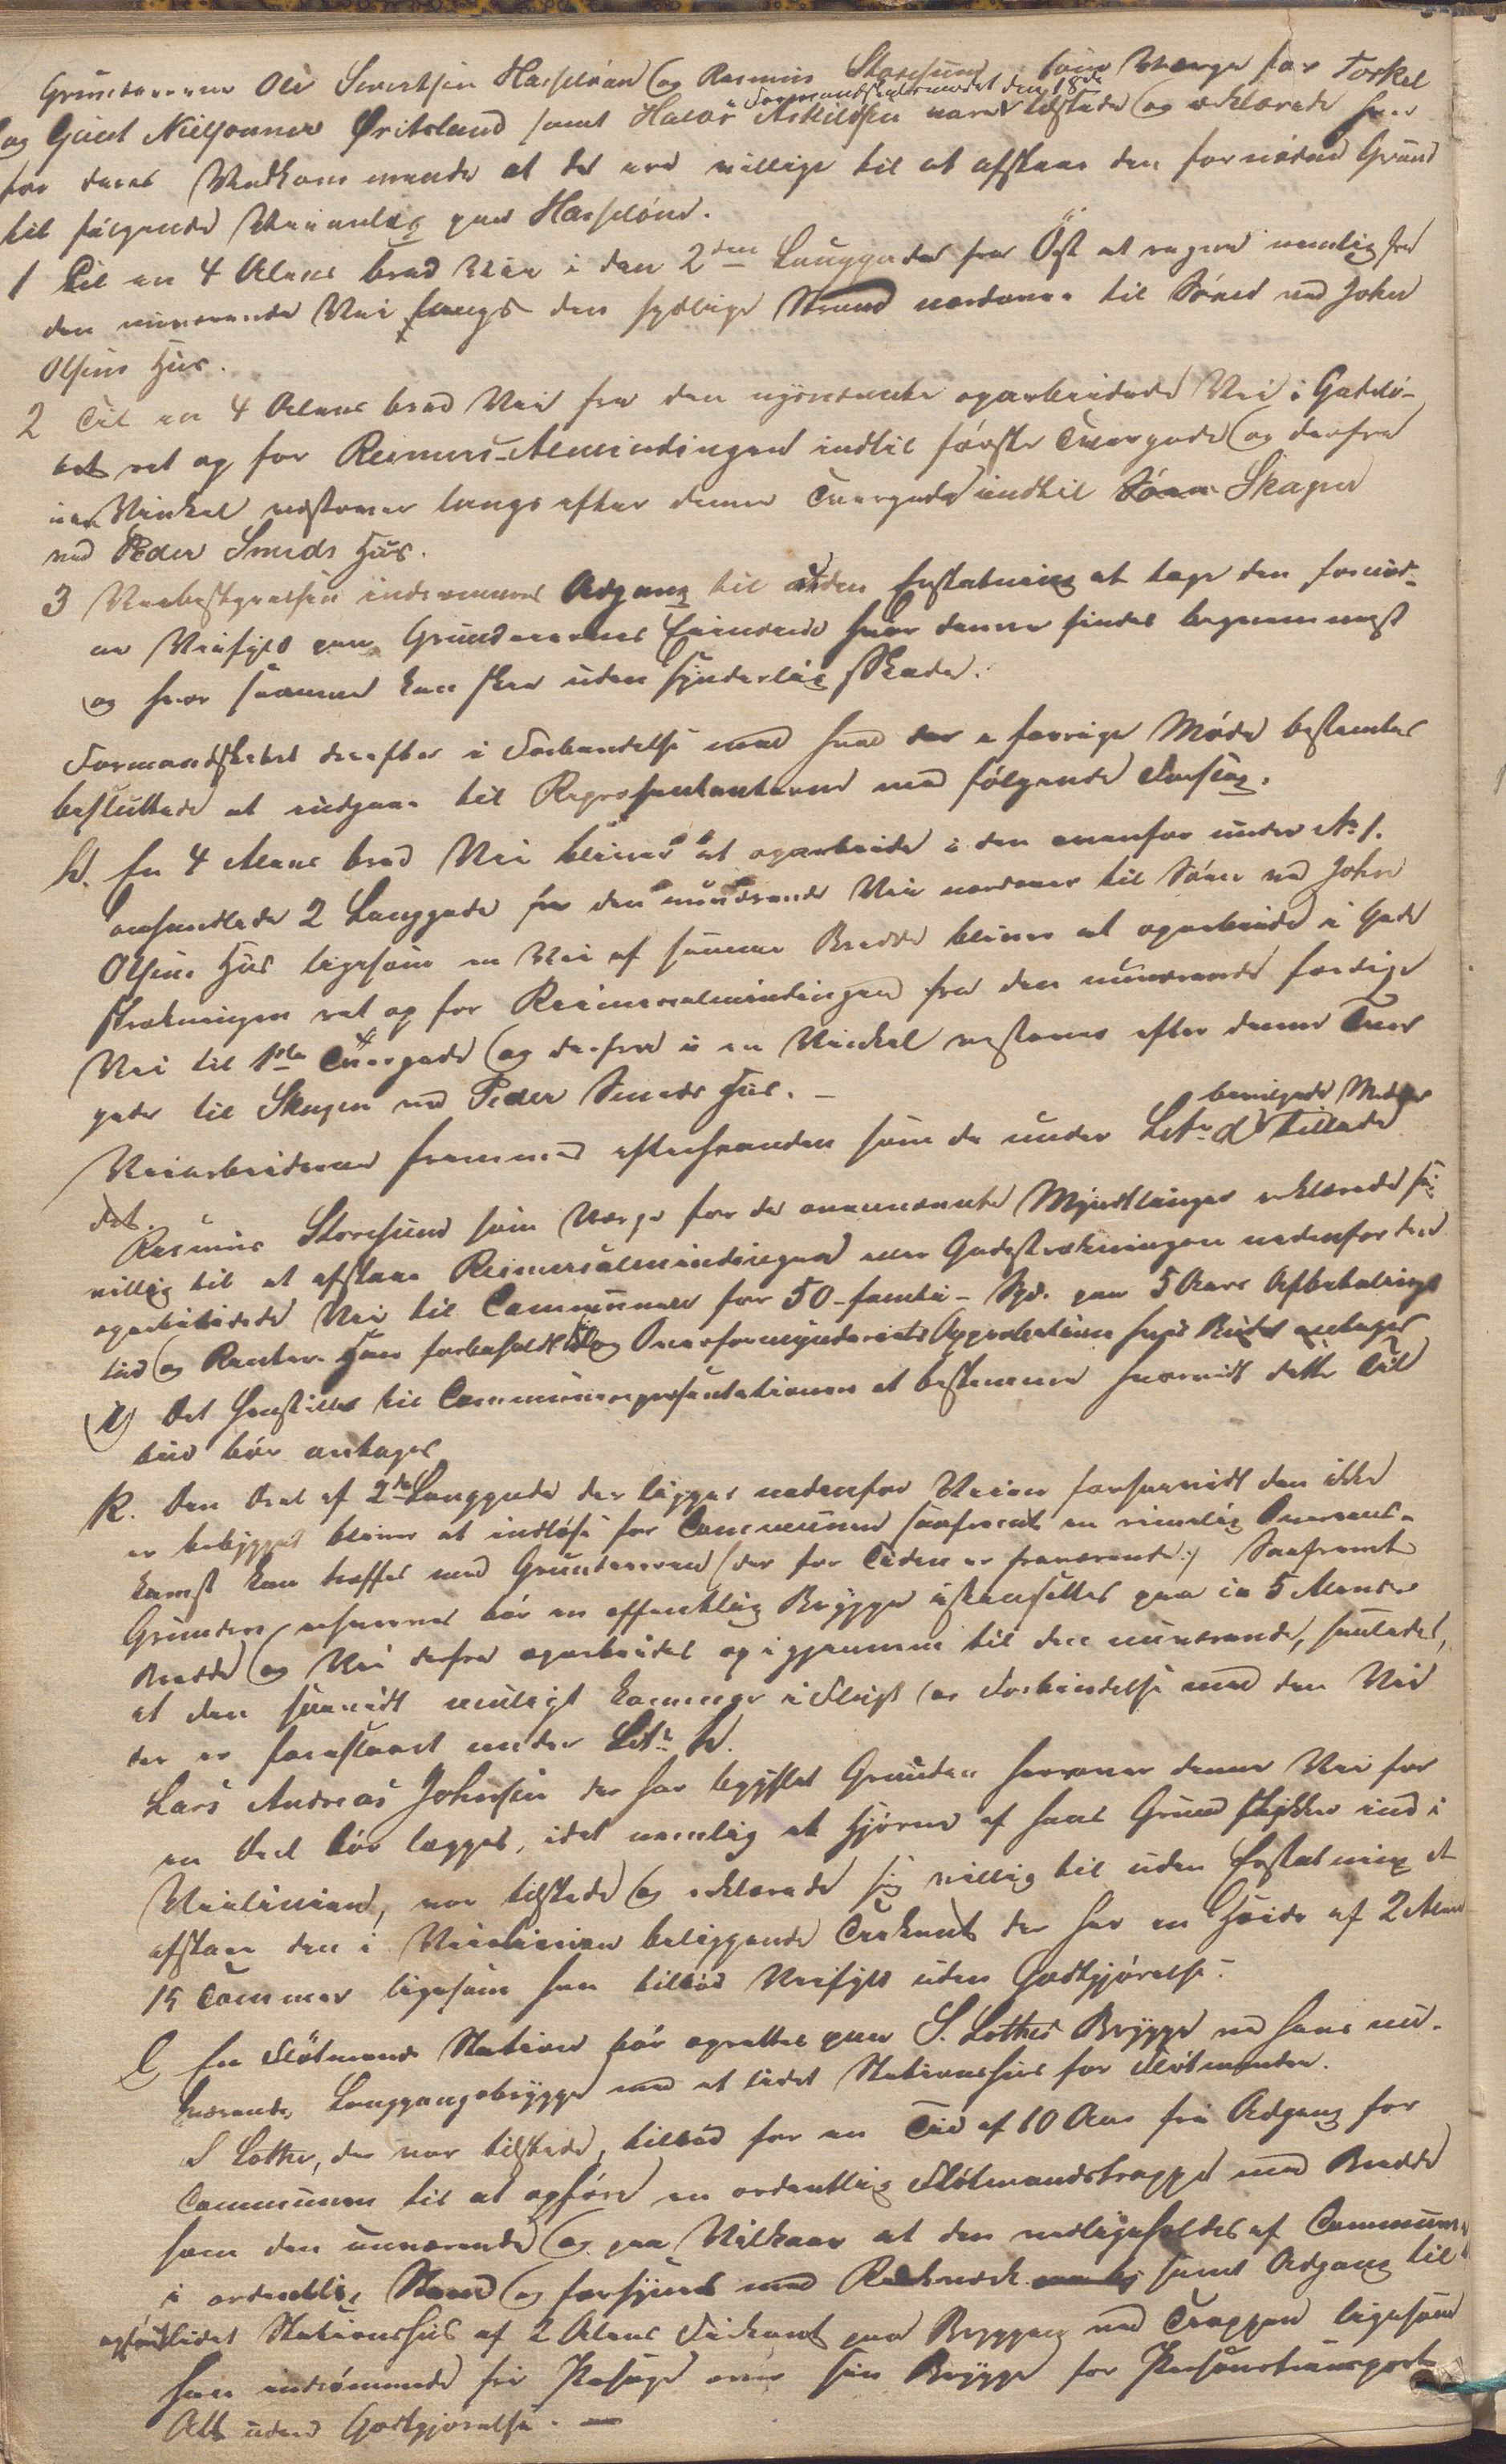 Grundeierne Ole Sivertsen Hasseløen og Rasmus Storesund som Værge for Torkel
og Gurt Nielsønner Øritsland samt Halvor Askildsen vare i Formandskabsmødet den 18de tilstede og erklærede sig
for deres Vedkommende at de ere villige til at afstaae den fornødne Grund
til følgende Veianlæg paa Hasseløen.
1 Til en 4 Alens bred Vei i den 2den Langgade fra Øst at regne nemlig fra
den nuværende Vei langs den sydlige Strand nordover til Søen ved John
Olsens Huus.
2 Til en 4 Alens bred Vei fra den nysnævnte oparbeidede Vei i Gadelø-
bet ret op for Reimers-Almindingen indtil første Tvergade og derfra
i en Vinkel vestover langs efter denne Tvergade indtil Skagen
ved Peder Smeds Huus.
3 Veibestyrelsen indrømmes Adgang til uden Erstatning at tage den fornød-
ne Veifyld paa Grundeiernes Eiendele hvor denne findes beqvemmest
og hvor saadant kan skee uden synderlig Skade.
Formandskabet derefter i Forbindelse med hvad der i forrige Møde bestemtes
besluttede at indgaae til Repræsentanterne med følgende Forslag.
h. En 4 Alens bred Vei bliver at oparbeide i den ovenfor under No 1.
omhandlede 2 Langgade fra den nuværende Vei nordover til Søen ved John
Olsens Huus ligesom en Vei af samme Bredde bliver at oparbeide i Gade
strækningen ret op for Reimersalmindingen fra den nuværende færdige
Vei til 1ste Tvergade og derfra i en Vinkel vestover efter denne Tver
gade til Skagen ved Peder Smeds Huus. –
Veiarbeiderne fremmes efterhaanden som de under Litr. d bevilgede Midler tillade
det.
Rasmus Storesund som Værge for de ovennævnte Myndlinger erklærede sig
villig til at afstaae Reimersalmindingen eller Gadestrækningen nedenfor den
oparbeidede Vei til Communen for 50 – femti – Spd. paa 5 Aars Afbetalings
tid og Renter. Han forbeholdt sig Overformynderiets Approbation hvis Budet antages
i) Det henstilles til Communerepræsentationen at bestemme hvorvidt dette Til
bud bør antages
k. Den Deel af 2den Langgade der ligger nedenfor Veien forsaavidt den ikke
er bebygget bliver at indløse for Communen saafremt en rimelig Overens-
komst kan træffes med Grundeieren (der for Tiden er fraværende.) Saafremt
Grunden erhverves bør en offentlig Brygge istandsættes paa ca 5 Alens
Bredde og Vei derfra oparbeidet op igjennem til den nuværende, saaledes,
at den saavidt muligt kommer i Flugt og Forbindelse med den Vei
der er foreslaaet under Litr. h.
Lars Andreas Johnsen der har bygslet Grunden hvorover denne Vei for
en Deel bør lægges, idet nemlig et Hjørne af hans Grund stikker ind i
Veilinien, var tilstede og erklærede sig villig til uden Erstatning at
afstaae den i Veilinien beliggende Trekant der har en Høide af 2 Alen
15 Tommer ligesom han tilbød Veifyld uden Godtgjørelse.
l En Fløtmands Station bør oprettes paa S. Lothes Brygge ved hans nu-
værende Langgangsbrygge med et lidet Stationshuus for Fløtmænder.
S Lothe, der var tilstede, tilbød for en Tid af 10 Aar fri Adgang for
Communen til at opføre en ordentlig Fløtmandstrappe med Bredde
som den nuværende og paa Vilkaar at den vedligeholdes af Communen
i ordentlig Stand og forsynes med Rækværk samt Adgang til
opført lidet Stationshuus af 2 Alens Firkant paa Bryggen ved Trappen ligesom
han indrømmede fri Passage over sin Brygge for Persontransport
Alt uden Godtgjørelse. –